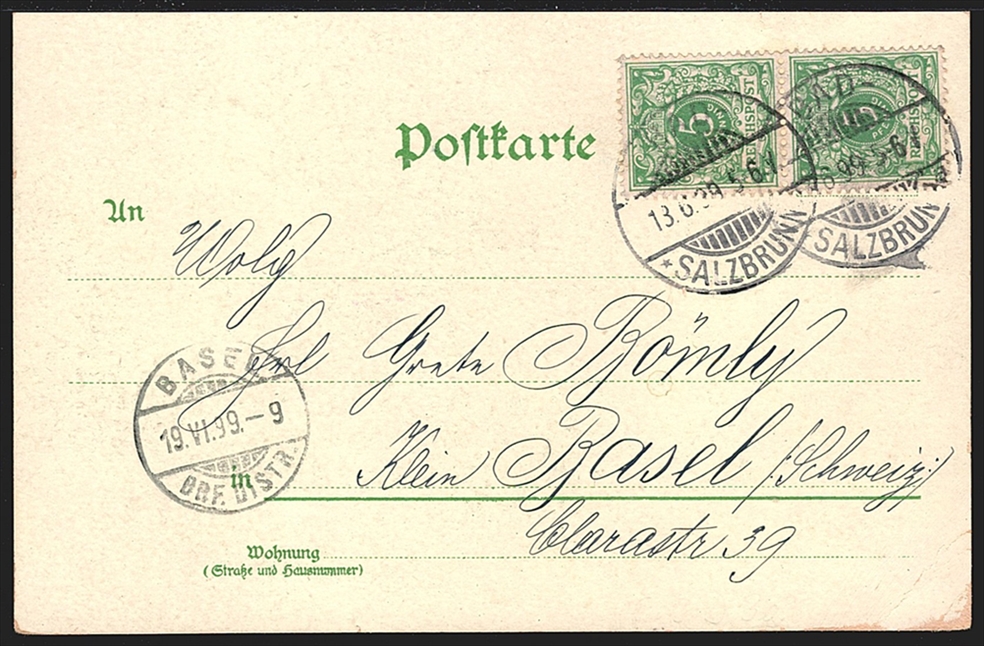 Postkarte
5
REICHSPOST
REICHSPOST
BAD
13.6.99.5-6.N.
6.99.5-6
* SALZBRUNN
SALZBRUNN
An
Wolg
Frl Grete Römly
BASEL
19.VI.99.-9
BRF. DISTR.
in
Klein Basel /:Schweiz:/
Clarastr 39
Wohnung
(Straße und Hausnummer)